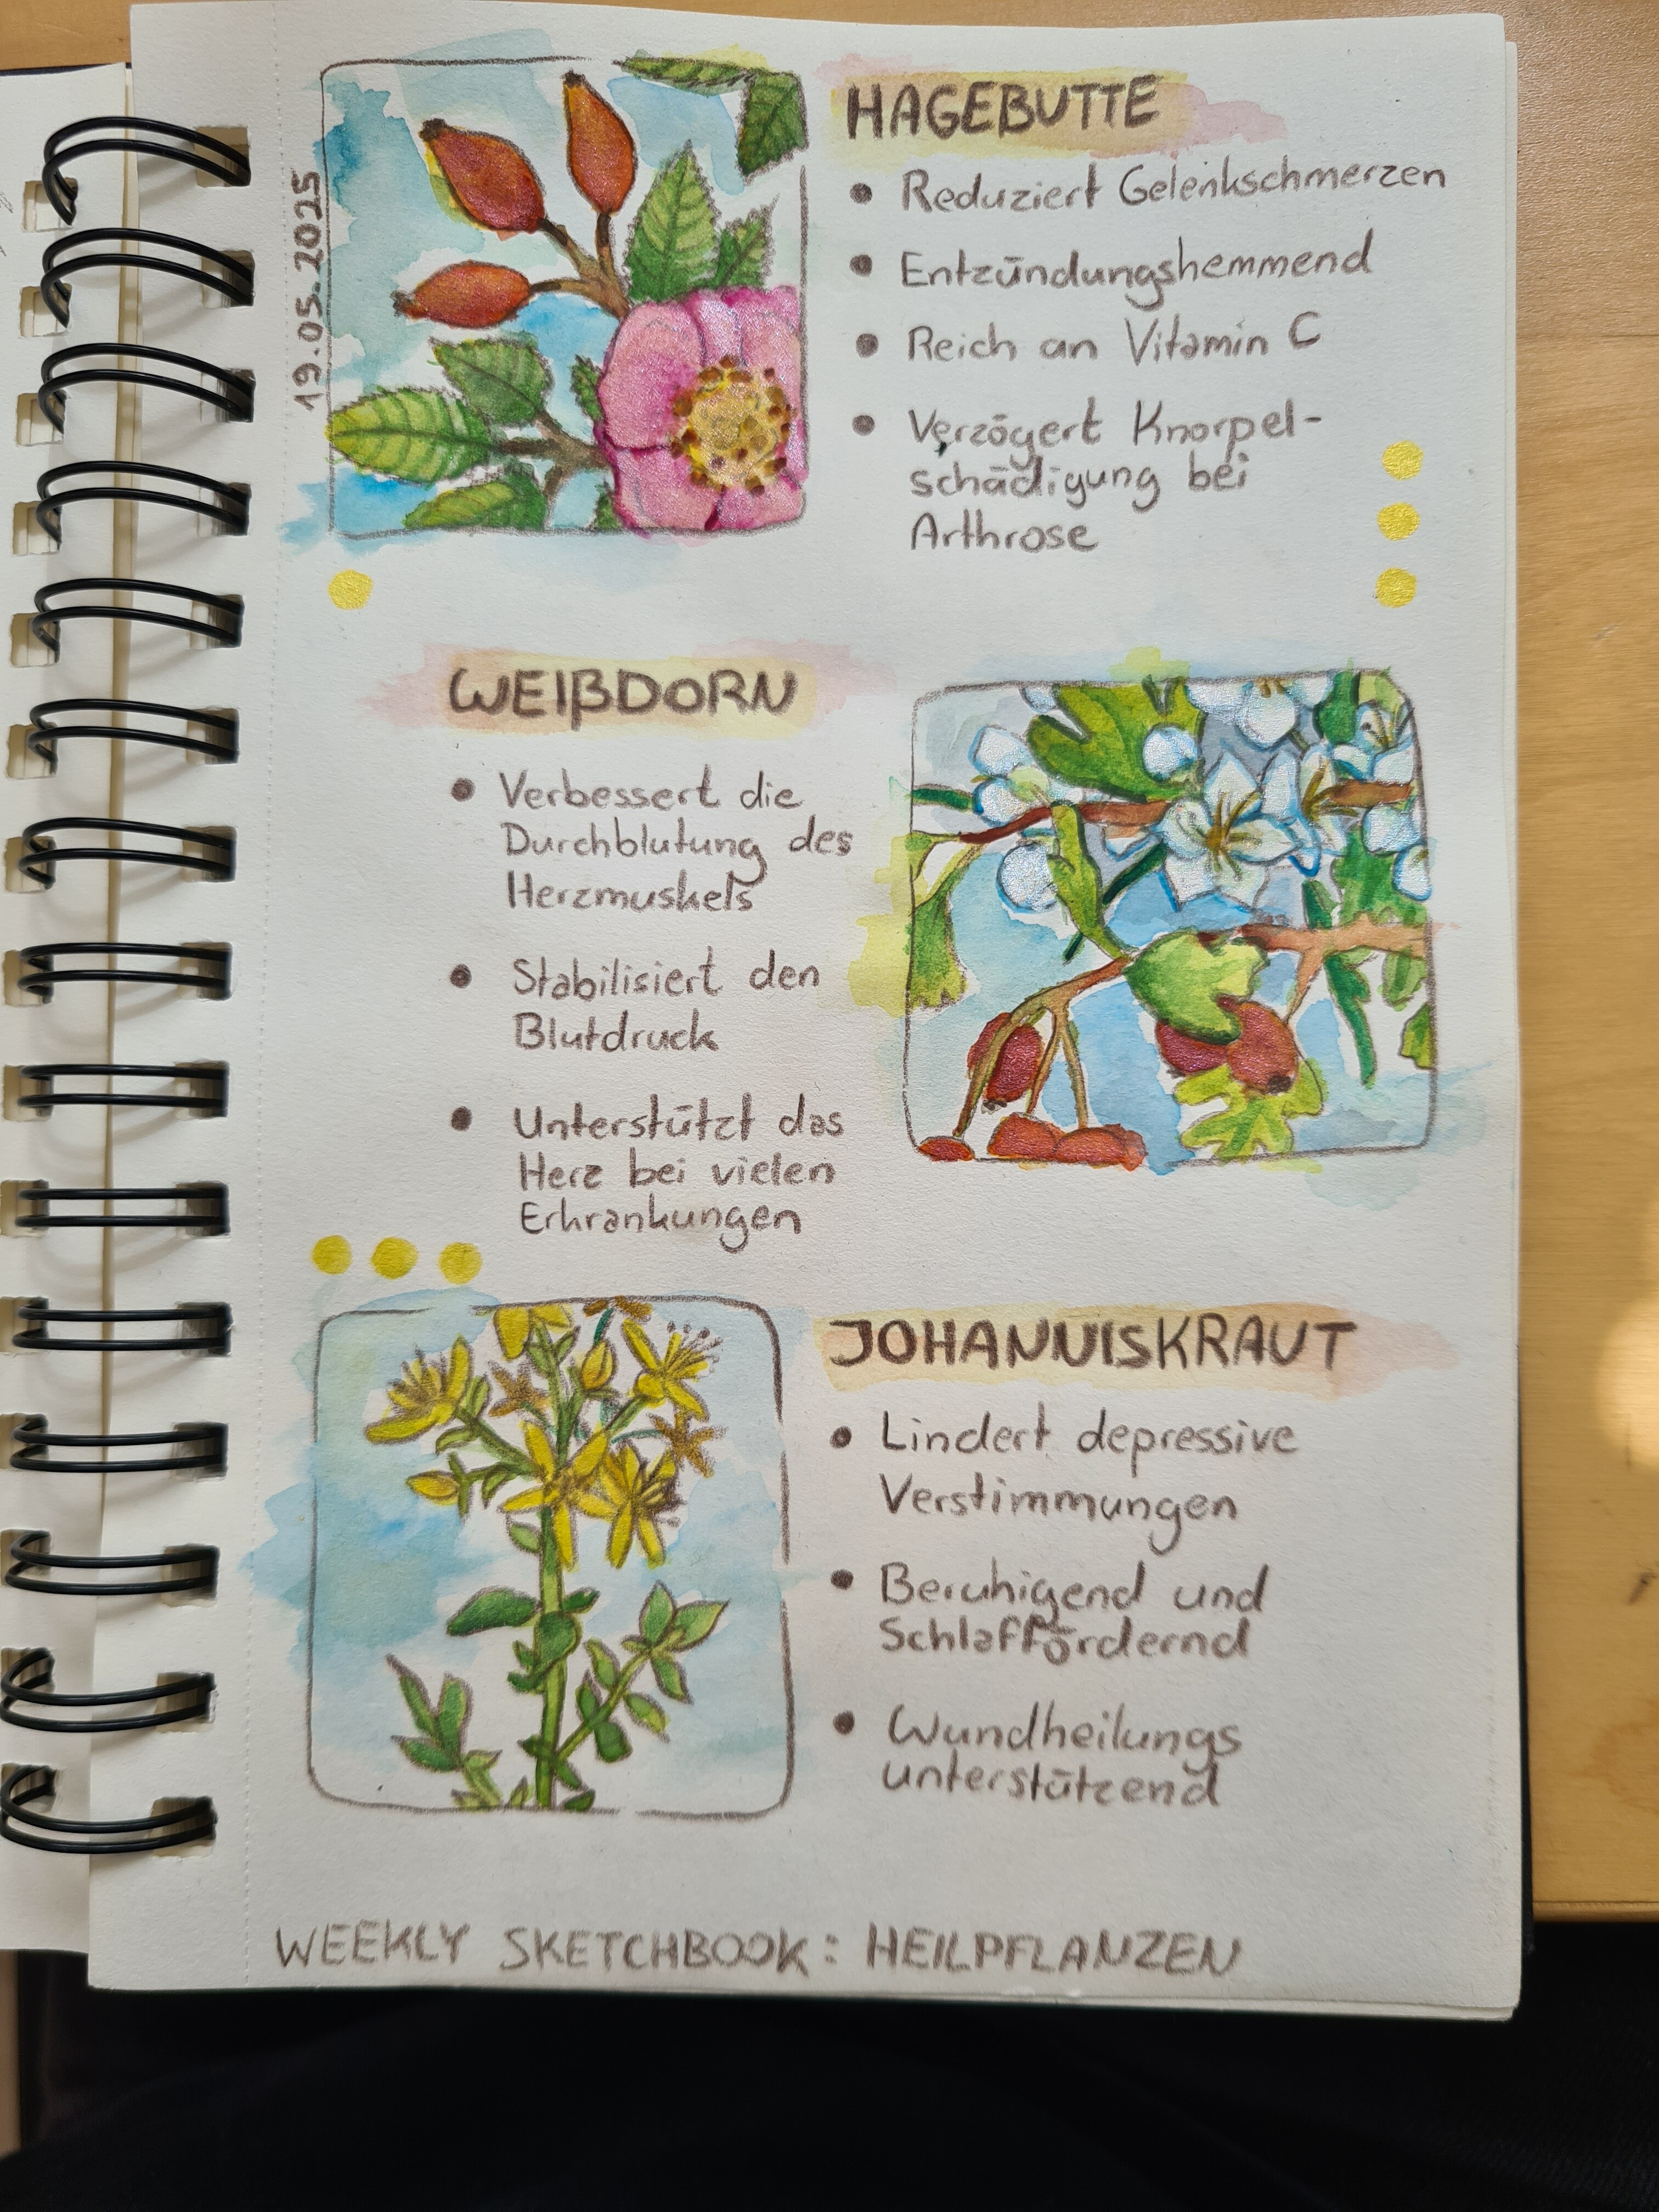 19.05.2025
HAGEBUTTE
• Reduziert Gelenkschmerzen
• Entzündungshemmend
• Reich an Vitamin C
• Verzögert Knorpel-
schädigung bei
Arthrose
WEIßDORN
• Verbessert die
Durchblutung des
Herzmuskels
• Stabilisiert den
Blutdruck
• Unterstützt das
Herz bei vielen
Erkrankungen
JOHANNISKRAUT
• Lindert depressive
Verstimmungen
• Beruhigend und
Schlaffördernd
• Wundheilungs
unterstützend
WEEKLY SKETCHBOOK: HEILPFLANZEN